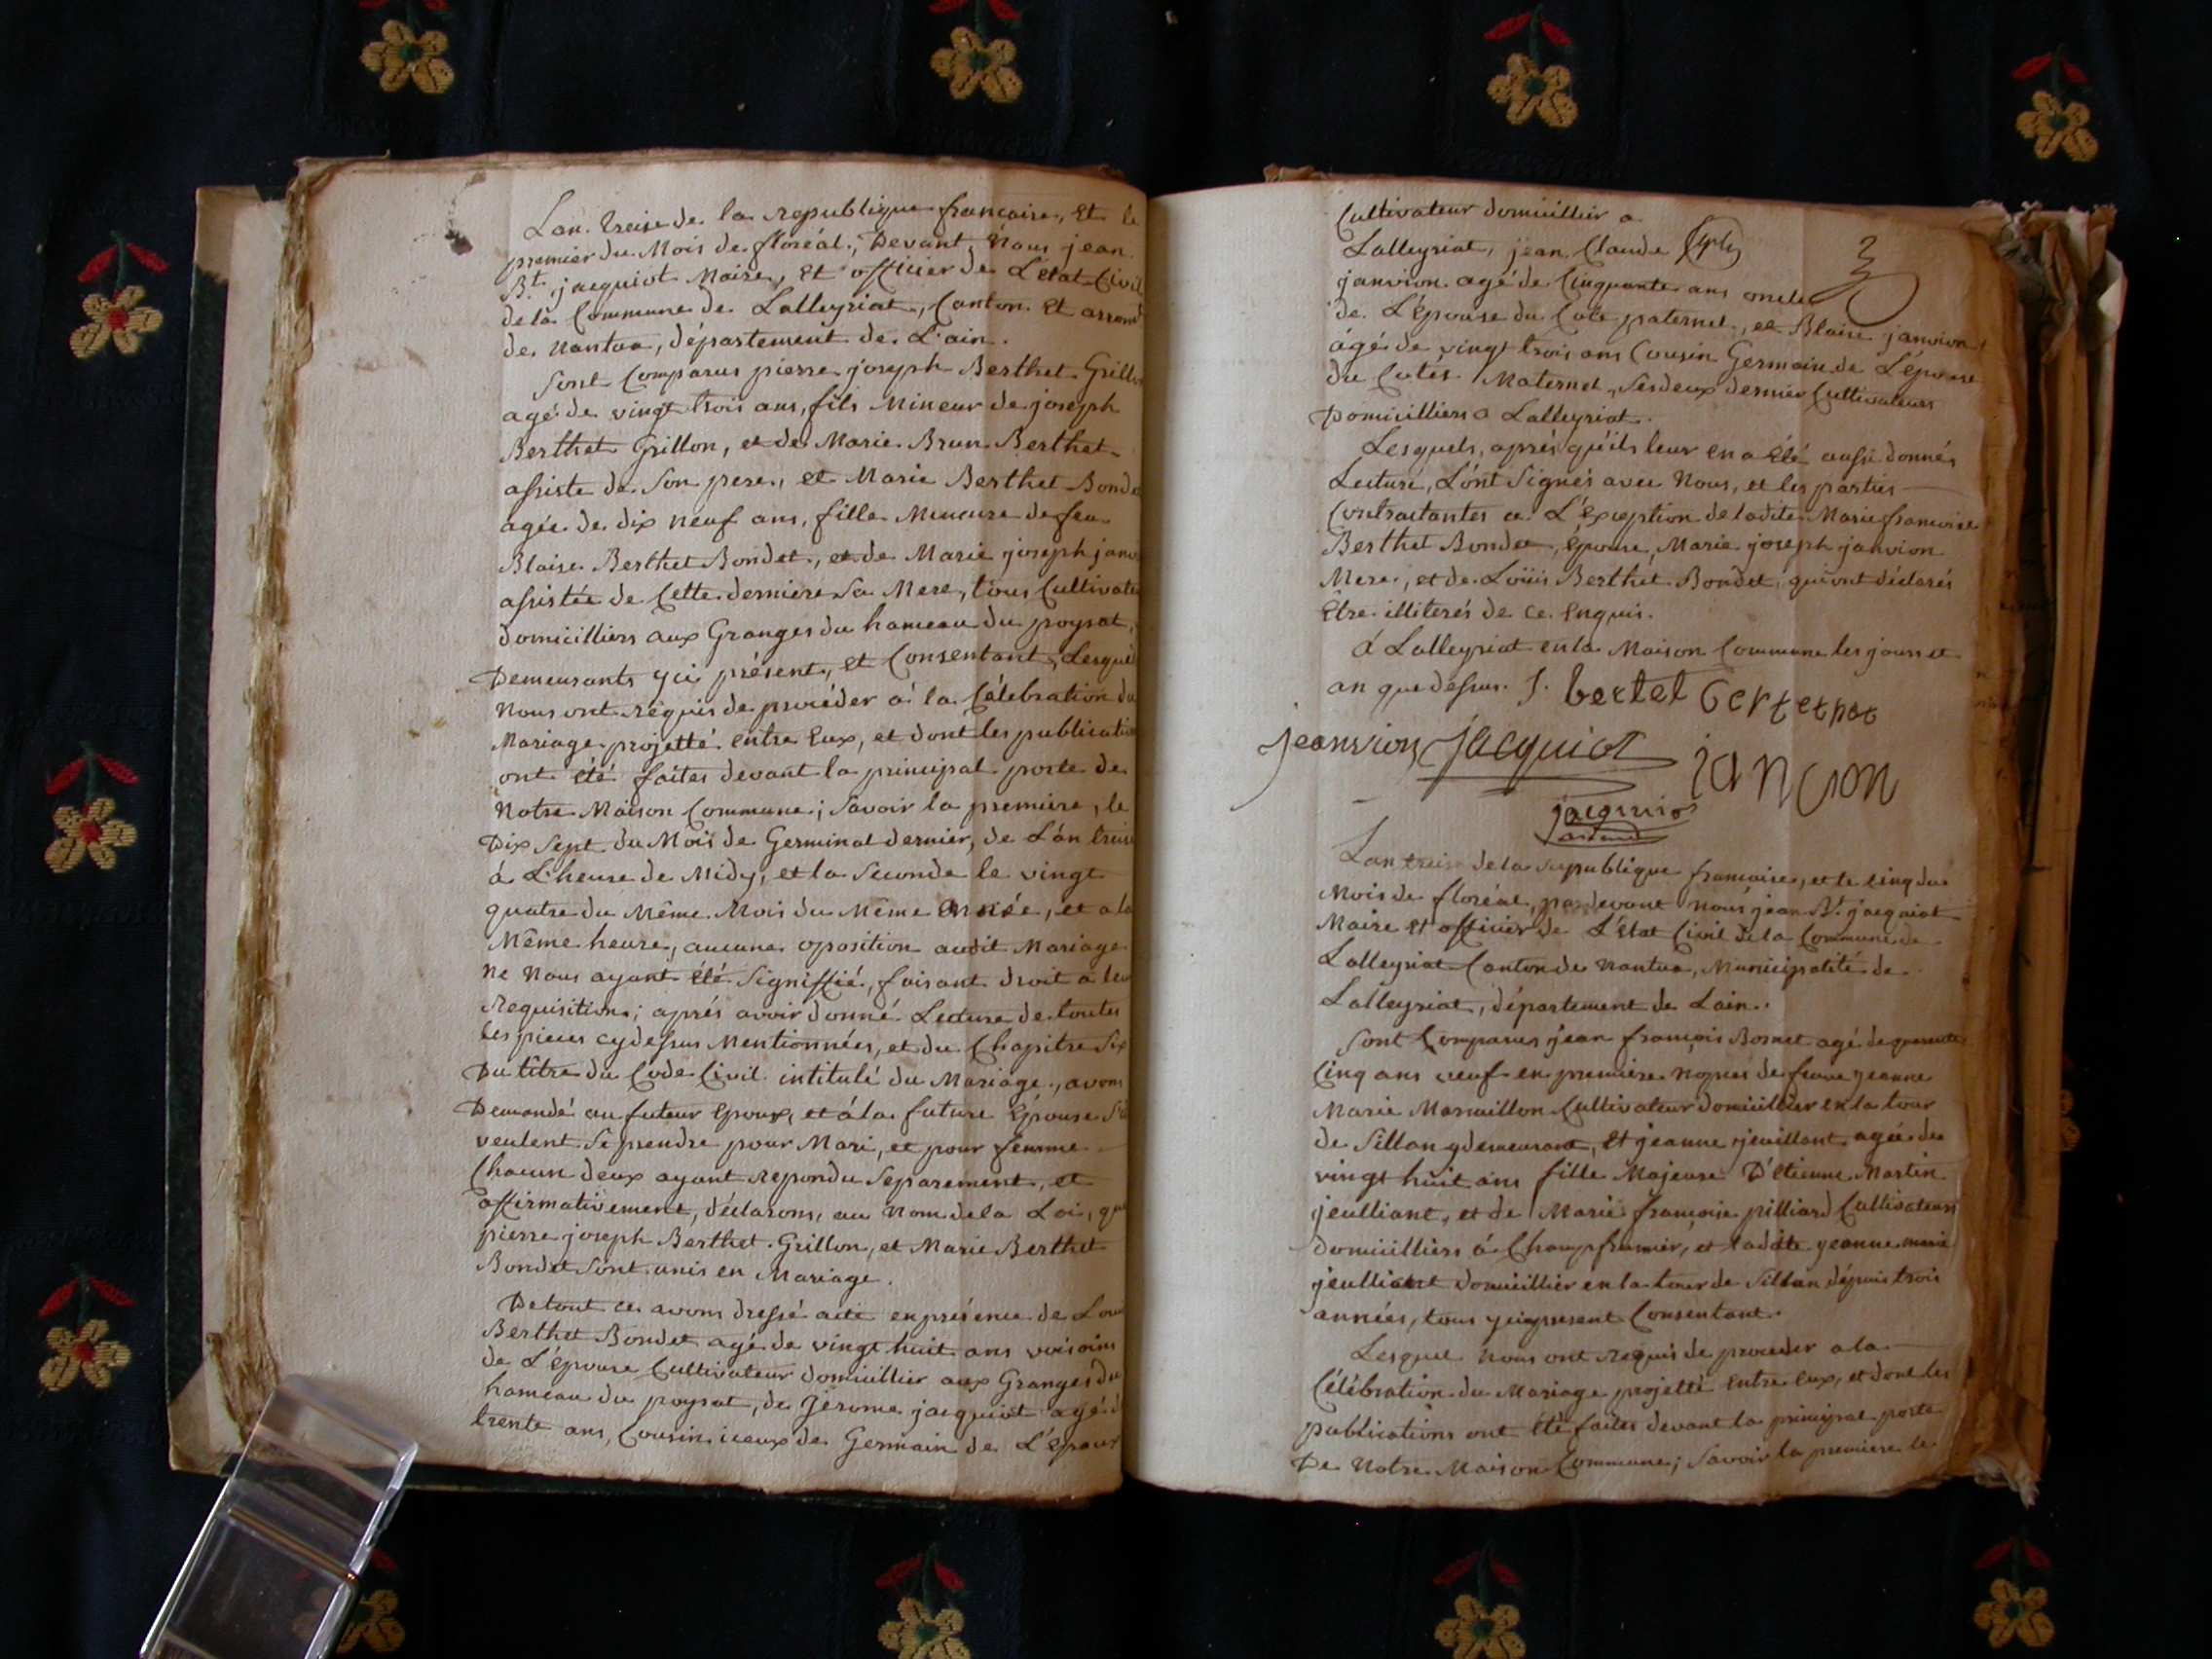 Lan treise de la republique francaise, Et le
premier du Mois de floréal, Devant, Nous jean
Bt. jacquiot Maire, Et officier de L'état Civil
de la Commune de Lalleyriat, Canton Et arrond
de Nantua, département de L'ain.
Sont Comparus pierre joseph Berthet Grillon
agé de vingt trois ans, fils Mineur de joseph
Berthet Grillon, et de Marie Brun Berthet
assiste de Son pere, et Marie Berthet Bondet
agée de dix neuf ans, fille Mineure de feu
Blaise Berthet Bondet, et de Marie joseph janvi
assistée de Cette derniere Sa Mere, tous Cultivate
domicilliers aux Granges du hameau du poysat,
Demeurants yci présent, et Consentant, Lesquel
Nous ont réquis de procéder à la Célebration du
Mariage projetté entre Eux, et dont les publication
ont été faites devant la principal porte de
Notre Maison Commune; Savoir la premiere, le
Dix Sept du Mois de Germinal dernier, de L'an treise
à L'heure de Midy, et la Seconde le vingt
quatre du Même Mois du Même année, et a la
Même heure, aucune oposition audit Mariage
Ne Nous ayant été Signiffié, faisant droit a leur
Requisition; aprés avoir donné Lecture de toutes
les pieces cydessus Mentionnées, et du Chapitre Six
Du titre du Code Civil intitulé du Mariage, avons
Demandé au futeur Epoux, et à la future Epouse S'il
veulent Se prendre pour Mari, et pour femme
Chacun deux ayant repondu Séparement, et
affirmativement, déclarons, au Nom de la Loi, que
pierre joseph Berthet Grillon, et Marie Berthet
Bondet Sont unis en Mariage.
De tout ce avons dressé acte en présence de Loui
Berthet Bondet agé de vingt huit ans voisoins
de L'épouse Cultivateur domicillier aux Granges du
hameau du poysat, de Jérome jacquiot agé d
trente ans, Cousin Germain de L'Epoux
Cultivateur domicillier a
Lalleyriat, jean Claude
janvion agé de Cinquante ans oncle
de L'Epouse du Coté paternel, et Blaise janvion
âgé de vingt trois ans Cousin Germain de L'épouse
du Cotés Maternel, Ses deux dernier Cultivateurs
Domicilliers a Lalleyriat.
Lesquels, aprés qu'ils leur en a été aussi donnés
Lecture, L'ont Signés avec Nous, et les parties
Contractantes a L'éxception de ladite Marie francoise
Berthet Bondet, Epouse, Marie joseph janvion
Mere, et de Loüis Berthet Bondet, qui ont déclarés
Etre illiterés de ce Enquis.
à Lalleyriat en la Maison Commune les jours et
an que dessus. J. bertet
jeanvion jacquiot janvion
jacquiot
Lan treise de la republique francoise, et le cinq du
Mois de floréal, par devant nous jean Bt. jacquiot
Maire et officier de L'état Civil de la Commune de
Lalleyriat Canton de Nantua, Municipalité de
Lalleyriat, département de Lain.
Sont Comparus jean françois Bornet agé de quarante
Cinq ans veuf en premiere Nopces de feue jeanne
Marie Marmillon Cultivateur domicillier en la tour
de Sillan y demeurant, Et jeanne jeuillant agée de
vingt huit ans fille Majeure D'étienne Martin
jeulliant, et de Marie françoise pilliard Cultivateurs
domicilliers à Champfromier, et ladite jeanne marie
jeulliant domicillier en la tour de Sillan dépuis trois
années, tous yci présent Consentant.
Lesquel Nous ont requis de proceder a la
Célébration du Mariage projetté Entre Eux, et dont les
publications ont été faites devant la principal porte
De Notre Maison Commune; Savoir la premiere le